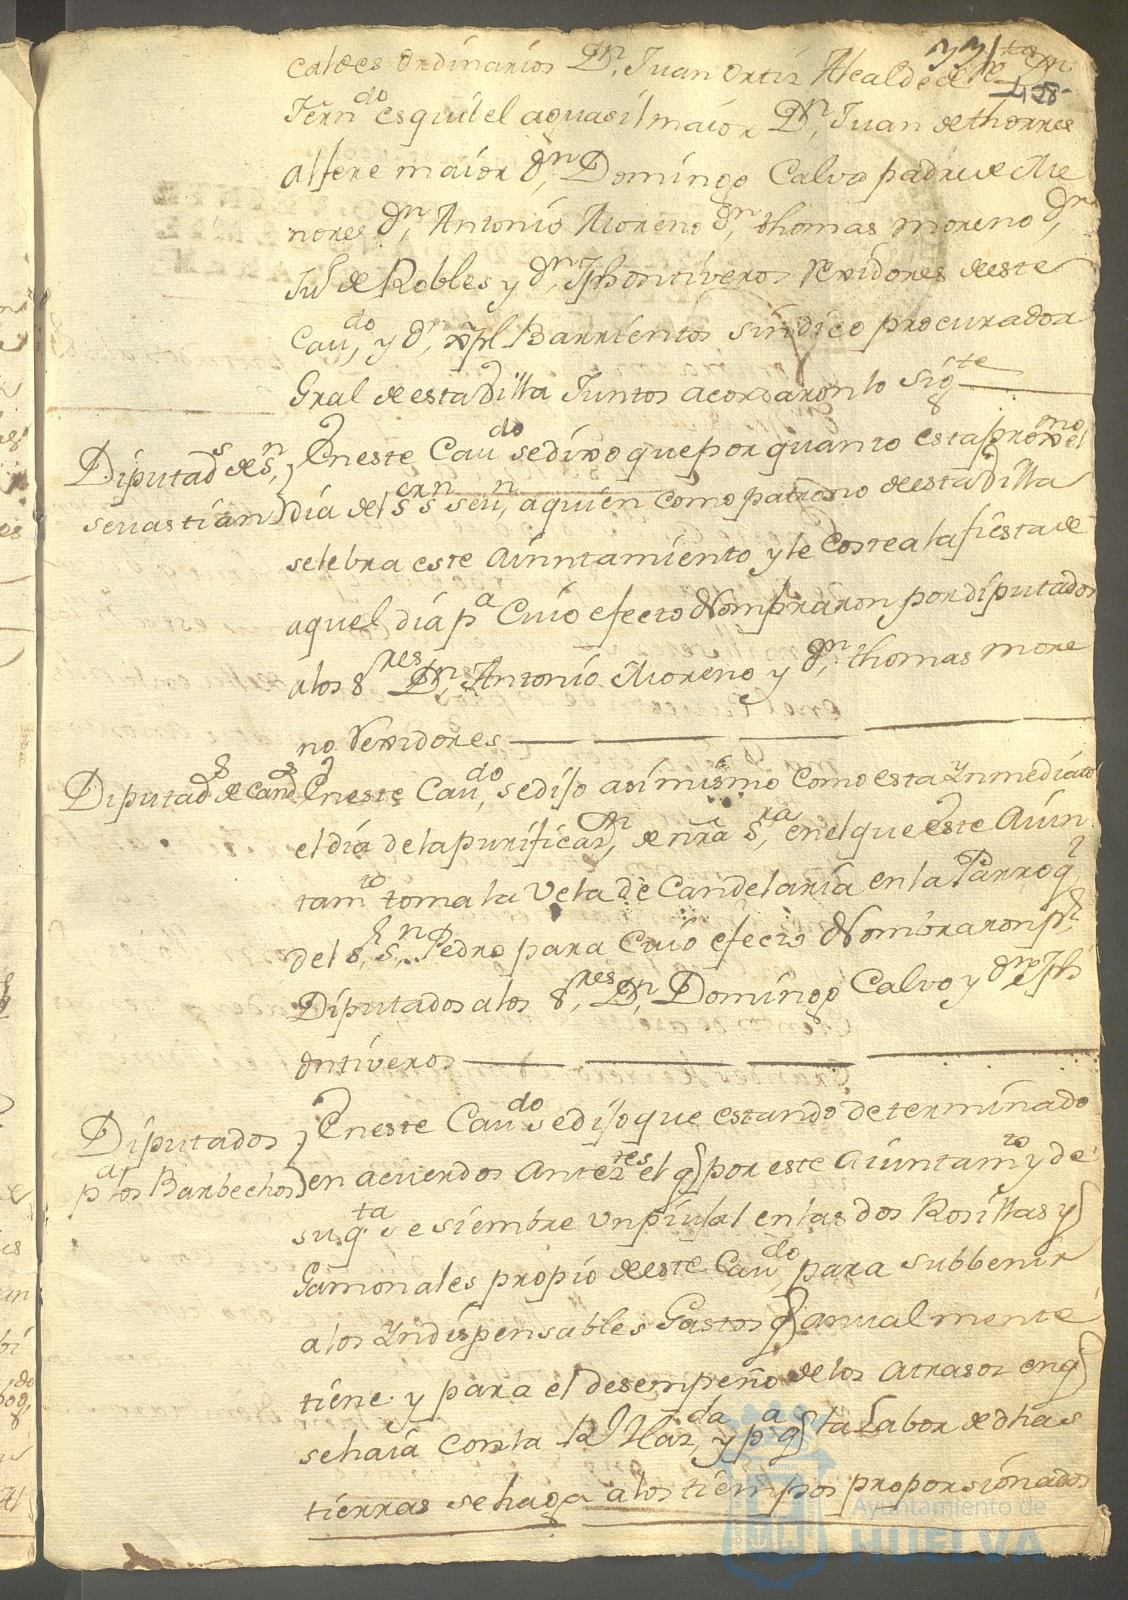 caldes ordinarios Dn, Juan ortiz Alcalde de la Sta
Ferndo esquibel aguasil maior Dn, Juan de thorres
alfere maior dn, Domingo Calvo padre de Me
nores dn, Antonio Moreno dn, thomas moreno dn,
Ju de Robles y dn, Jph ontiveros Rexidores de este
Caudo, y dn, xpl Barrientos síndico procurador
Gral de esta Villa Juntos acordaron lo sigte
Diputads de Sn,
sevastian
En este Caudo se dixo que por quanto esta proxmo el
dia del sr sn seun, a quien como patrono de esta Villa
selebra este Aiuntamiento y le Costea la fiesta de
aquel dia pa Cuio efecto Nombraron por diputados
a los Sres, Dn, Antonio Moreno y dn, thomas more
no Rexidores
Diputads de cands
En este Caudo, se dijo asi mismo como esta Ynmediato
el dia de la purificazn, de nra sra, en el que este Aiun
tamto toma la Vela de Candelaria en la Parroq
del Sr, Sn, Pedro para Cuio efecto Nombraron pr,
Diputados a los Sres, Dn, Domingo Calvo y dn Jph
ontiveros
Diputados
pa los Barbechos
En este Caudo se dijo que estando determinado
en acuerdos anteres el q por este Aiuntamto y de
su qta se siembre un piujal en las dos Rosillas y
Gamonales propio de este Caudo, para subbenir
a los Yndispensables Gastos q anualmente
tiene y para el desempeño de los atrasos en q
se haia con la Rl Hazda, y pa q la Labor de dhas
tierras se haga a los tiempos proporsionados
Ayuntamiento de
HUELVA